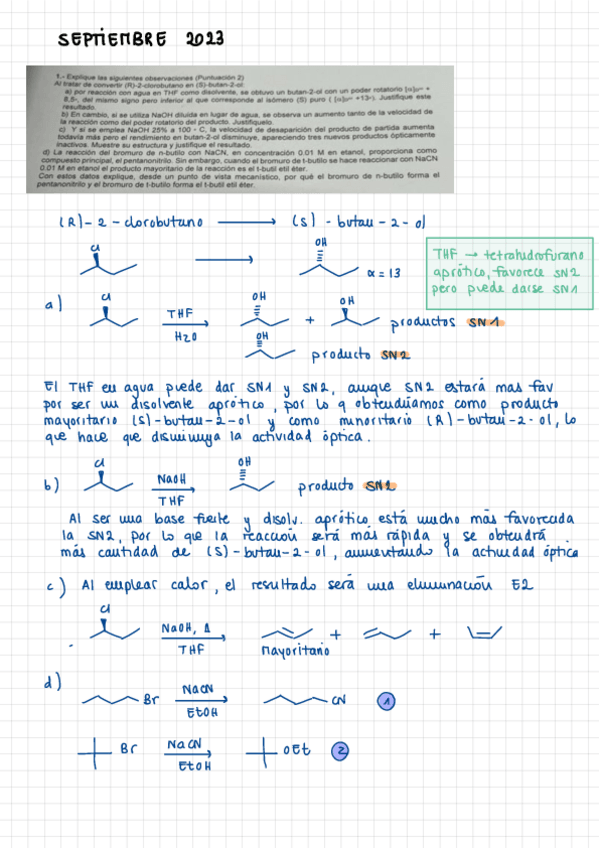 SEPTIEMBRE 2023
1.- Explique las siguientes observaciones (Puntuación 2)
Al tratar de convertir (R)-2-clorobutano en (S)-butan-2-ol:
a) por reacción con agua en THF como disolvente, se obtuvo un butan-2-ol con un poder rotatorio [α]D= +
8,5º, del mismo signo pero inferior al que corresponde al isómero (S) puro ( [α]D= +13º). Justifique este
resultado.
b) En cambio, si se utiliza NaOH diluida en lugar de agua, se observa un aumento tanto de la velocidad de
la reacción como del poder rotatorio del producto. Justifíquelo.
c) Y si se emplea NaOH 25% a 100 º C, la velocidad de desaparición del producto de partida aumenta
todavía más pero el rendimiento en butan-2-ol disminuye, apareciendo tres nuevos productos ópticamente
inactivos. Muestre su estructura y justifique el resultado.
d) La reacción del bromuro de n-butilo con NaCN, en concentración 0.01 M en etanol, proporciona como
compuesto principal, el pentanonitrilo. Sin embargo, cuando el bromuro de t-butilo se hace reaccionar con NaCN
0.01 M en etanol el producto mayoritario de la reacción es el t-butil etil éter.
Con estos datos explique, desde un punto de vista mecanístico, por qué el bromuro de n-butilo forma el
pentanonitrilo y el bromuro de t-butilo forma el t-butil etil éter.
(R)-2-clorobutano ⟶ (S)-butan-2-ol
Cl OH
α = 13
THF → tetrahidrofurano
aprótico, favorece SN2
pero puede darse SN1
a) Cl THF H2O OH + OH productos SN1
OH producto SN2
El THF en agua puede dar SN1 y SN2, aunqe SN2 estará mas fav
por ser un disolvente aprótico, por lo q obtendríamos como producto
mayoritario (S)-butan-2-ol y como minoritario (R)-butan-2-ol, lo
que hace que disminuya la actividad óptica.
b) Cl NaOH THF OH producto SN2
Al ser una base fuerte y disolv. aprótico, está mucho más favorecida
la SN2, por lo que la reacción será más rápida y se obtendrá
más cantidad de (S)-butan-2-ol, aumentando la actividad óptica
c) Al emplear calor, el resultado será una eliminación E2
Cl NaOH, Δ THF + +
Mayoritario
d) Br NaCN EtOH CN 1
Br NaCN EtOH OEt 2